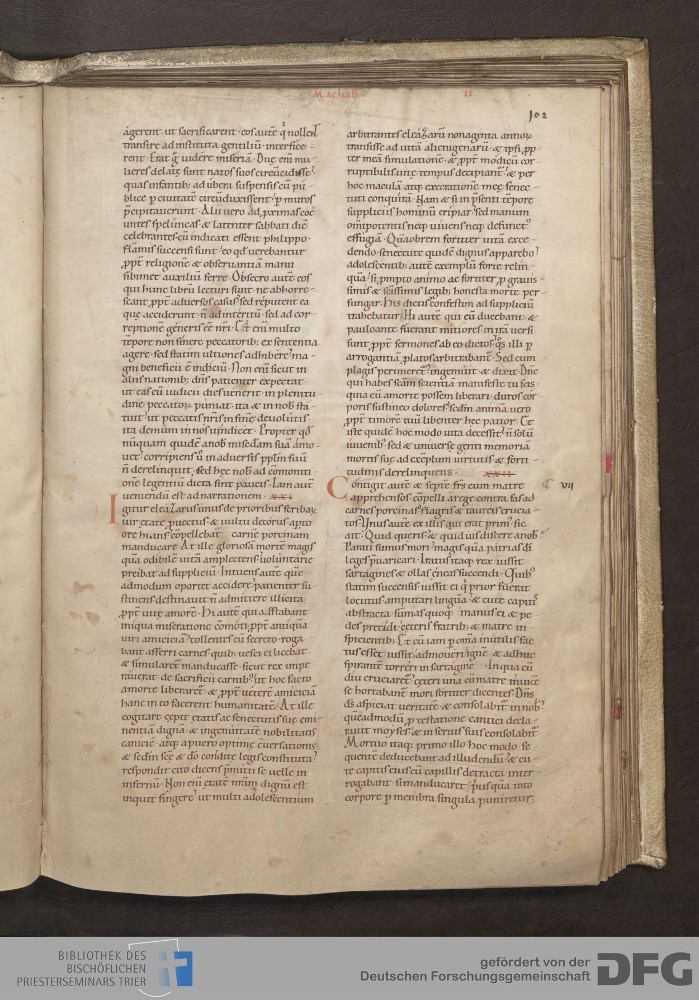 Machab II
102
agerent. ut sacrificarent. eos autē q̇ nollent
transire ad instituta gentiliū. interfice
rent. Erat g̊ videre miseriā. Duę enī mu
lieres delatę sunt natos suos circūcidisse.
quas infantib; ad ubera suspensis cū pu
blice p ciuitatē circūduxissent. p muros
p̄cipitauerunt. Alii uero ad p̄ximas coe
untes speluncas. & latenter sabbati diē
celebrantes. cū indicati essent philippo.
flāmis succensi sunt. eo qd̄ verebantur
ꝓpt̄ religionē & obseruantiā manu
sibimet auxiliū ferre. Obsecro autē eos
qui hunc librū lecturi sunt. ne abhorre
scant ꝓpt̄ aduersos casus. sed reputent ea
quę acciderunt. n̄ ad interitū. sed ad cor
reptionē generis eē nr̄i. Et enī multo
tēpore non sinere peccatorib; ex sententia
agere. sed statim ultiones adhibere. ma
gni beneficii ē indiciū. Non enī sicut in
aliis nationib; dn̄s patienter expectat.
ut eas cū iudicii dies uenerit. in plenitu
dine peccatorꝝ puniat. ita & in nob̄ sta
tuit. ut peccatis nr̄is in finē deuolutis.
ita demum in nos vindicet. Propter qd̄
nūquam quidē a nob̄ misc̄dam suā amo
uet. corripiens ū in aduersis pplm̄ suū
n̄ derelinquit. sed hęc nob̄ ad cōmoniti
onē legentiū dicta sint paucis. Iam autē
ueniendū est ad narrationem. xxi.
Igitur eleazarus unus de prioribus scribarꝝ
uir ętate ꝓuectus. & uultu decorus. apto
ore hians cōpellebat̄ carnē porcinam
manducare. At ille gloriosā mortē magis
quā odibilē uitā amplectens. uoluntarie
preibat ad suppliciū. Intuens autē quē
admodum oportet accidere patienter su
stinens. destinauit n̄ admittere illicita
ꝓpt̄ uitę amorē. Hi autē qui astabant
iniqua miseratione cōmoti. ꝓpt̄ antiquā
uiri amiciciā. tollentes eū secreto. roga
bant afferri carnes quib; uesci ei licebat.
& simularet̄ manducasse. sicut rex impe
rauerat de sacrificii carnib; ut hoc facto
a morte liberaret̄. & ꝓpt̄ ueterē amiciciā
hanc in eo facerent humanitatē. At ille
cogitare cępit ętatis ac senectutis suę emi
nentiā digna. & ingenuitatē nobilitatis
canicie. atq; a puero optimę cuersationis.
& scdm̄ scę & dō conditę legis constituta
respondit cito dicens p̄mitti se uelle in
infernū. Non enī ętate nrām dignū est
inquit fingere. ut multi adolescentium
arbitrantes eleazarū nonaginta annorꝝ
transisse ad uitā alienigenarū. & ipsi ꝓp
ter meā simulationē. & ꝓpt̄ modicū cor
ruptibilis uitę tempus decipiant̄. & per
hoc maculā atq; execrationē meę senec
tuti conquirā. Nam & si in p̄senti tēpore
suppliciis hominū eripiar. sed manum
om̄ipotentis neq; uiuens neq; defunct̄
effugiā. Quāobrem fortiter uitā exce
dendo. senectute quidē dignus apparebo.
adolescentib; autē exemplū forte relin
quā. si ꝓmpto animo ac fortiter ꝓ grauis
simis & sc̄issimis legib; honesta morte per
fungar. His dictis confestim ad suppliciū
trahebatur. Hi autē qui eū ducebant &
paulo ante fuerant mitiores. in irā versi
sunt ꝓpt̄ sermones ab eo dictos. q̊s illi ꝑ
arrogantiā ꝓlatos arbitrabant̄. Sed cum
plagis perimeret̄. ingemuit & dixit. Dn̄e
qui habes scām scientiā. manifeste tu scis
quia cū a morte possem liberari. duros cor
poris sustineo dolores. scdm̄ animā uero
ꝓpt̄ timorē tuū libenter hęc patior. Et
iste quidē hoc modo uita decessit. n̄ solū
iuuenib; sed & uniuersę genti memoriā
mortis suę ad exēplum uirtutis & forti
tudinis derelinquens. xxii
Contigit autē & septē fr̄s cum matre VII
apprehensos cōpelli a rege contra fas ad
carnes porcinas. flagris & taureis crucia
tos. Vnus autē ex illis qui erat primꝰ sic
ait. Quid queris. & quid uis discere a nob̄.
Parati sumus mori. magis quā patrias dī
leges p̄uaricari. Iratus itaq; rex iussit
sartagines & ollas ęneas succendi. Quib;
statim succensis. iussit ei q̇ prior fuerat
locutus amputari linguā. & cute capitꝭ
abstracta. sūmas quoq; manus ei & pe
des p̄scidi. cęteris fratrib; & matre in
spicientib; Et cū iam ꝑ om̄a inutilis fac
tus esset. iussit admoueri igni. & adhuc
spirantē torreri in sartagine. In qua cū
diu cruciaret̄. cęteri una cū matre inuicē
se hortabant̄ mori fortiter dicentes. Dn̄s
ds̄ aspiciet veritatē. & consolabit̄ in nob̄.
quēadmodū ꝓtestatione cantici decla
rauit moyses. & in seruis suis consolabit̄.
Mortuo itaq; primo illo hoc modo. se
quentē deducebant ad illudendū. & cu
te capitis eius cū capillis detracta. inter
rogabant si manducaret. priusquā toto
corpore p membra singula puniretur.
BIBLIOTHEK DES
BISCHÖFLICHEN
PRIESTERSEMINARS TRIER
gefördert von der
Deutschen Forschungsgemeinschaft
DFG